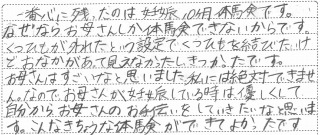 一番心に残ったのは妊娠10ヶ月体験です。
なぜならお母さんしか体験できないからです。
くつひもがわれたという設定でくつひもを結びたいけ
どおなかがあって見えなかったしきつかったです。
お母さんはすごいなと思いました。私には絶対できませ
ん。なので、お母さんが妊娠している時は優しくして
自分からお母さんのお手伝いをしていきたいなと思いま
す。こんなきちょうな体験ができてよかったです